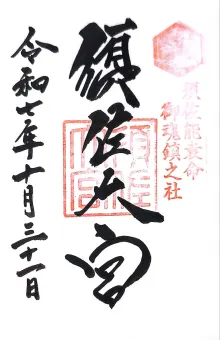 須佐能袁命
御魂鎮之社
須佐大宮
令和七年十月三十一日